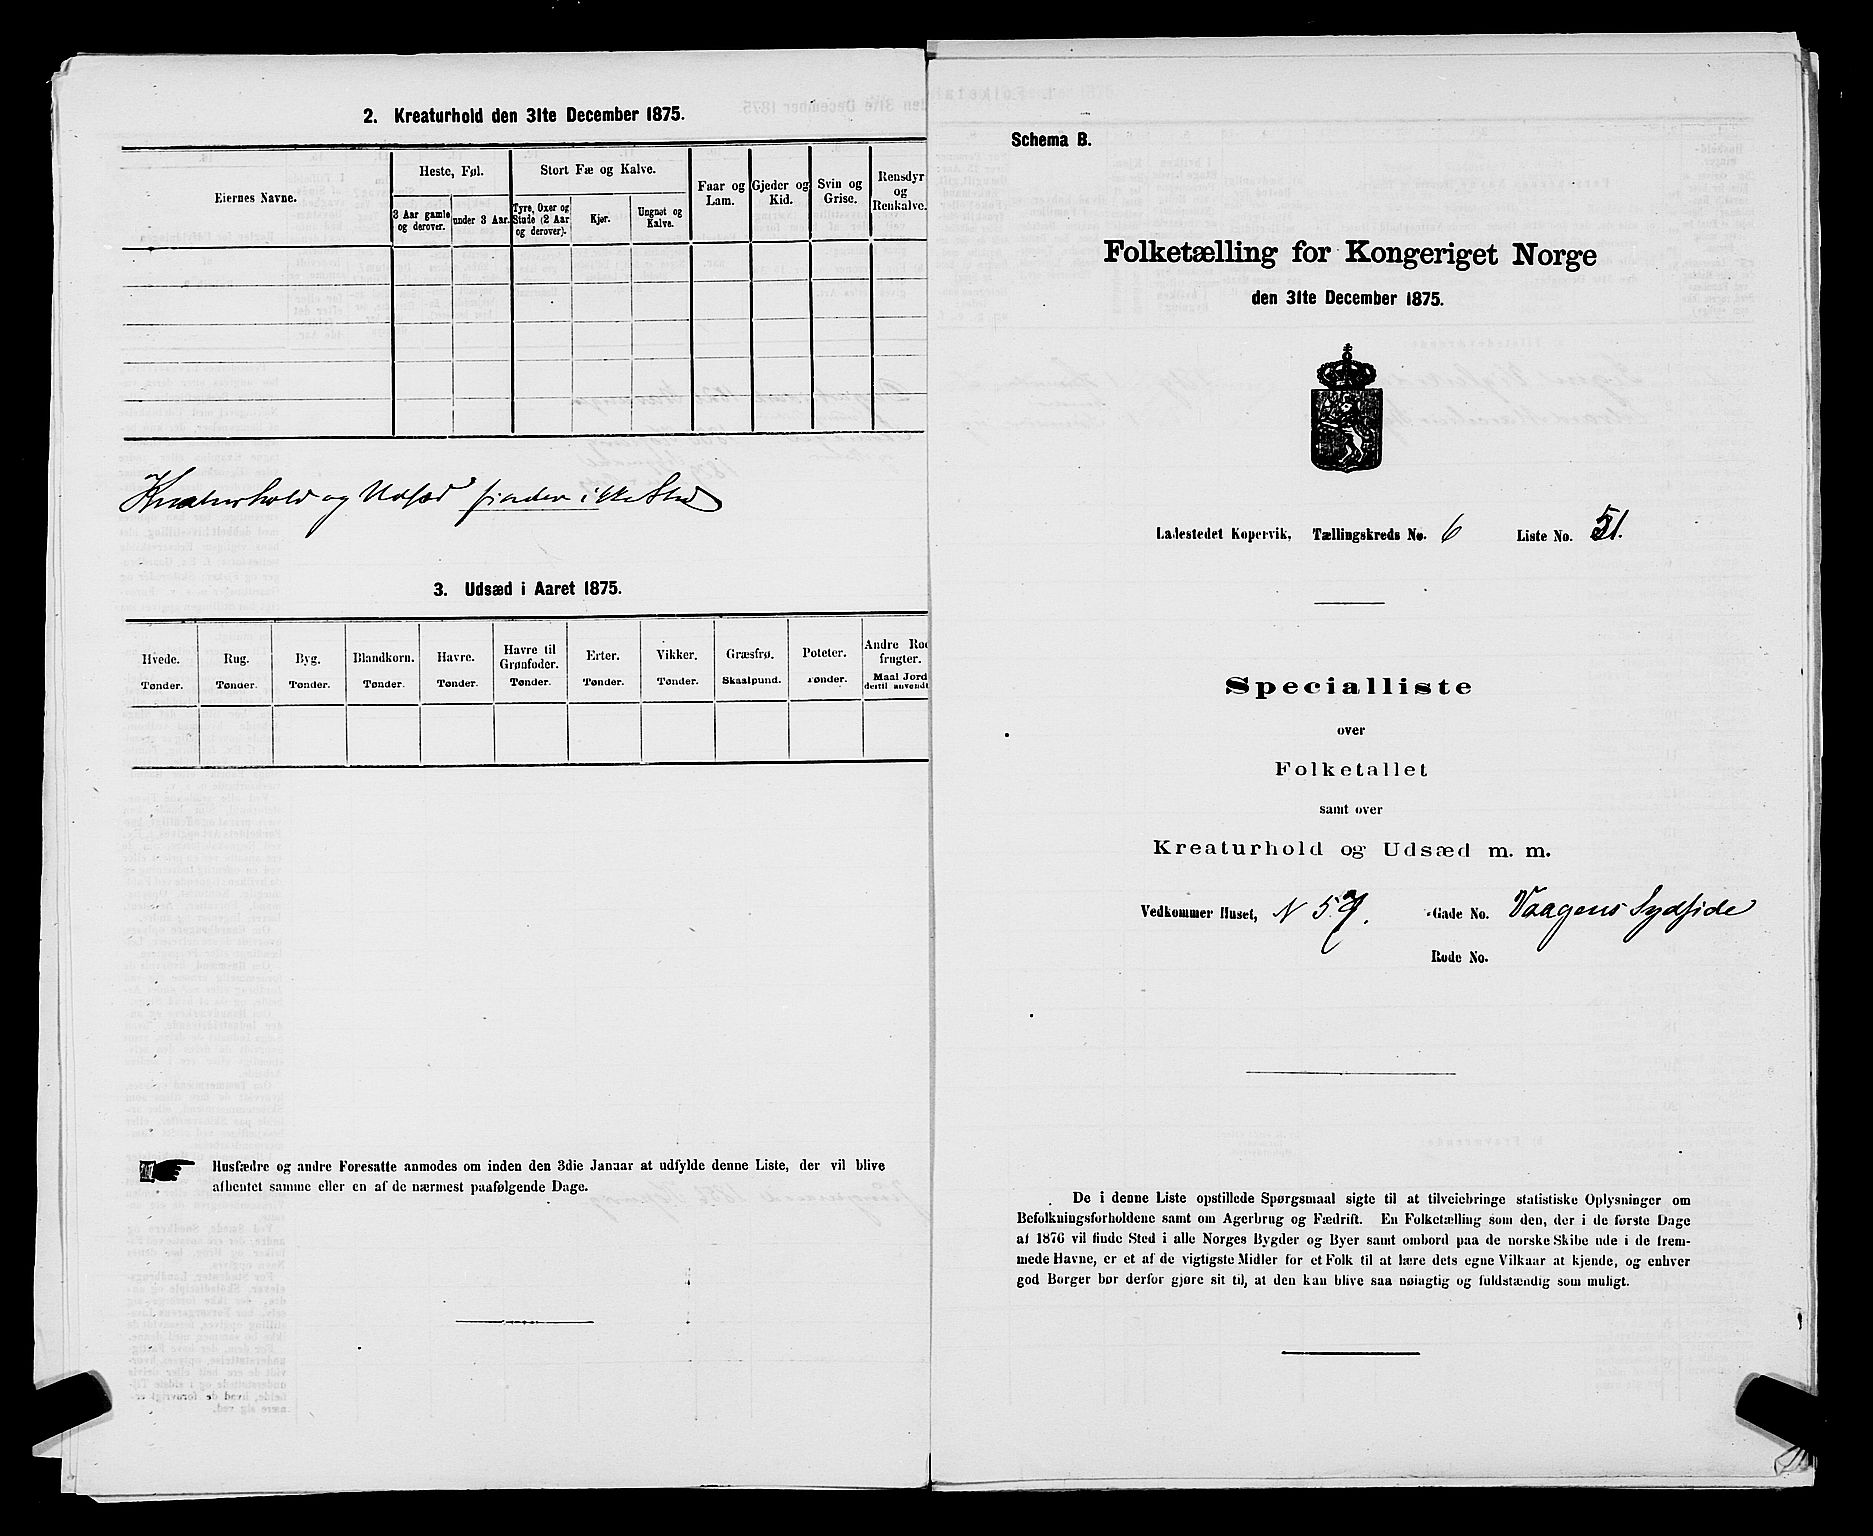 2. Kreaturhold den 31te December 1875.
Eiernes Navne.
Heste, Føl.
Stort Fæ og Kalve.
Faar og Lam.
Gjeder og Kid.
Svin og Grise.
Rensdyr og Renkalve.
3 Aar gamle og derover.
under 3 Aar.
Tyre, Oxer og Stude (2 Aar og derover).
Kjør.
Ungnøt og Kalve.
Kreaturhold og Udsæd finder ikke Sted
3. Udsæd i Aaret 1875.
Hvede.
Rug.
Byg.
Blandkorn.
Havre.
Havre til Grønfoder.
Erter.
Vikker.
Græsfrø.
Poteter.
Andre Rod
frugter.
Tønder.
Tønder.
Tønder.
Tønder.
Tønder.
Tønder.
Tønder.
Tønder.
Skaalpund.
Tønder.
Maal Jord
dertil anvendt
Husfædre og andre Foresatte anmodes om inden den 3die Januar at udfylde denne Liste, der vil blive
afhentet samme eller en af de nærmest paafølgende Dage.
Schema B.
Folketælling for Kongeriget Norge
den 31te December 1875.
Ladestedet Kopervik, Tællingskreds No. 6 Liste No. 51.
Specialliste
over
Folketallet
samt over
Kreaturhold og Udsæd m. m.
Vedkommer Huset, N 57. Gade No. Vaagens Sydside
Rode No.
De i denne Liste opstillede Spørgsmaal sigte til at tilveiebringe statistiske Oplysninger om
Befolkningsforholdene samt om Agerbrug og Fædrift. En Folketælling som den, der i de første Dage
af 1876 vil finde Sted i alle Norges Bygder og Byer samt ombord paa de norske Skibe ude i de frem-
mede Havne, er et af de vigtigste Midler for et Folk til at lære dets egne Vilkaar at kjende, og enhver
god Borger bør derfor gjøre sit til, at den kan blive saa nøiagtig og fuldstændig som muligt.